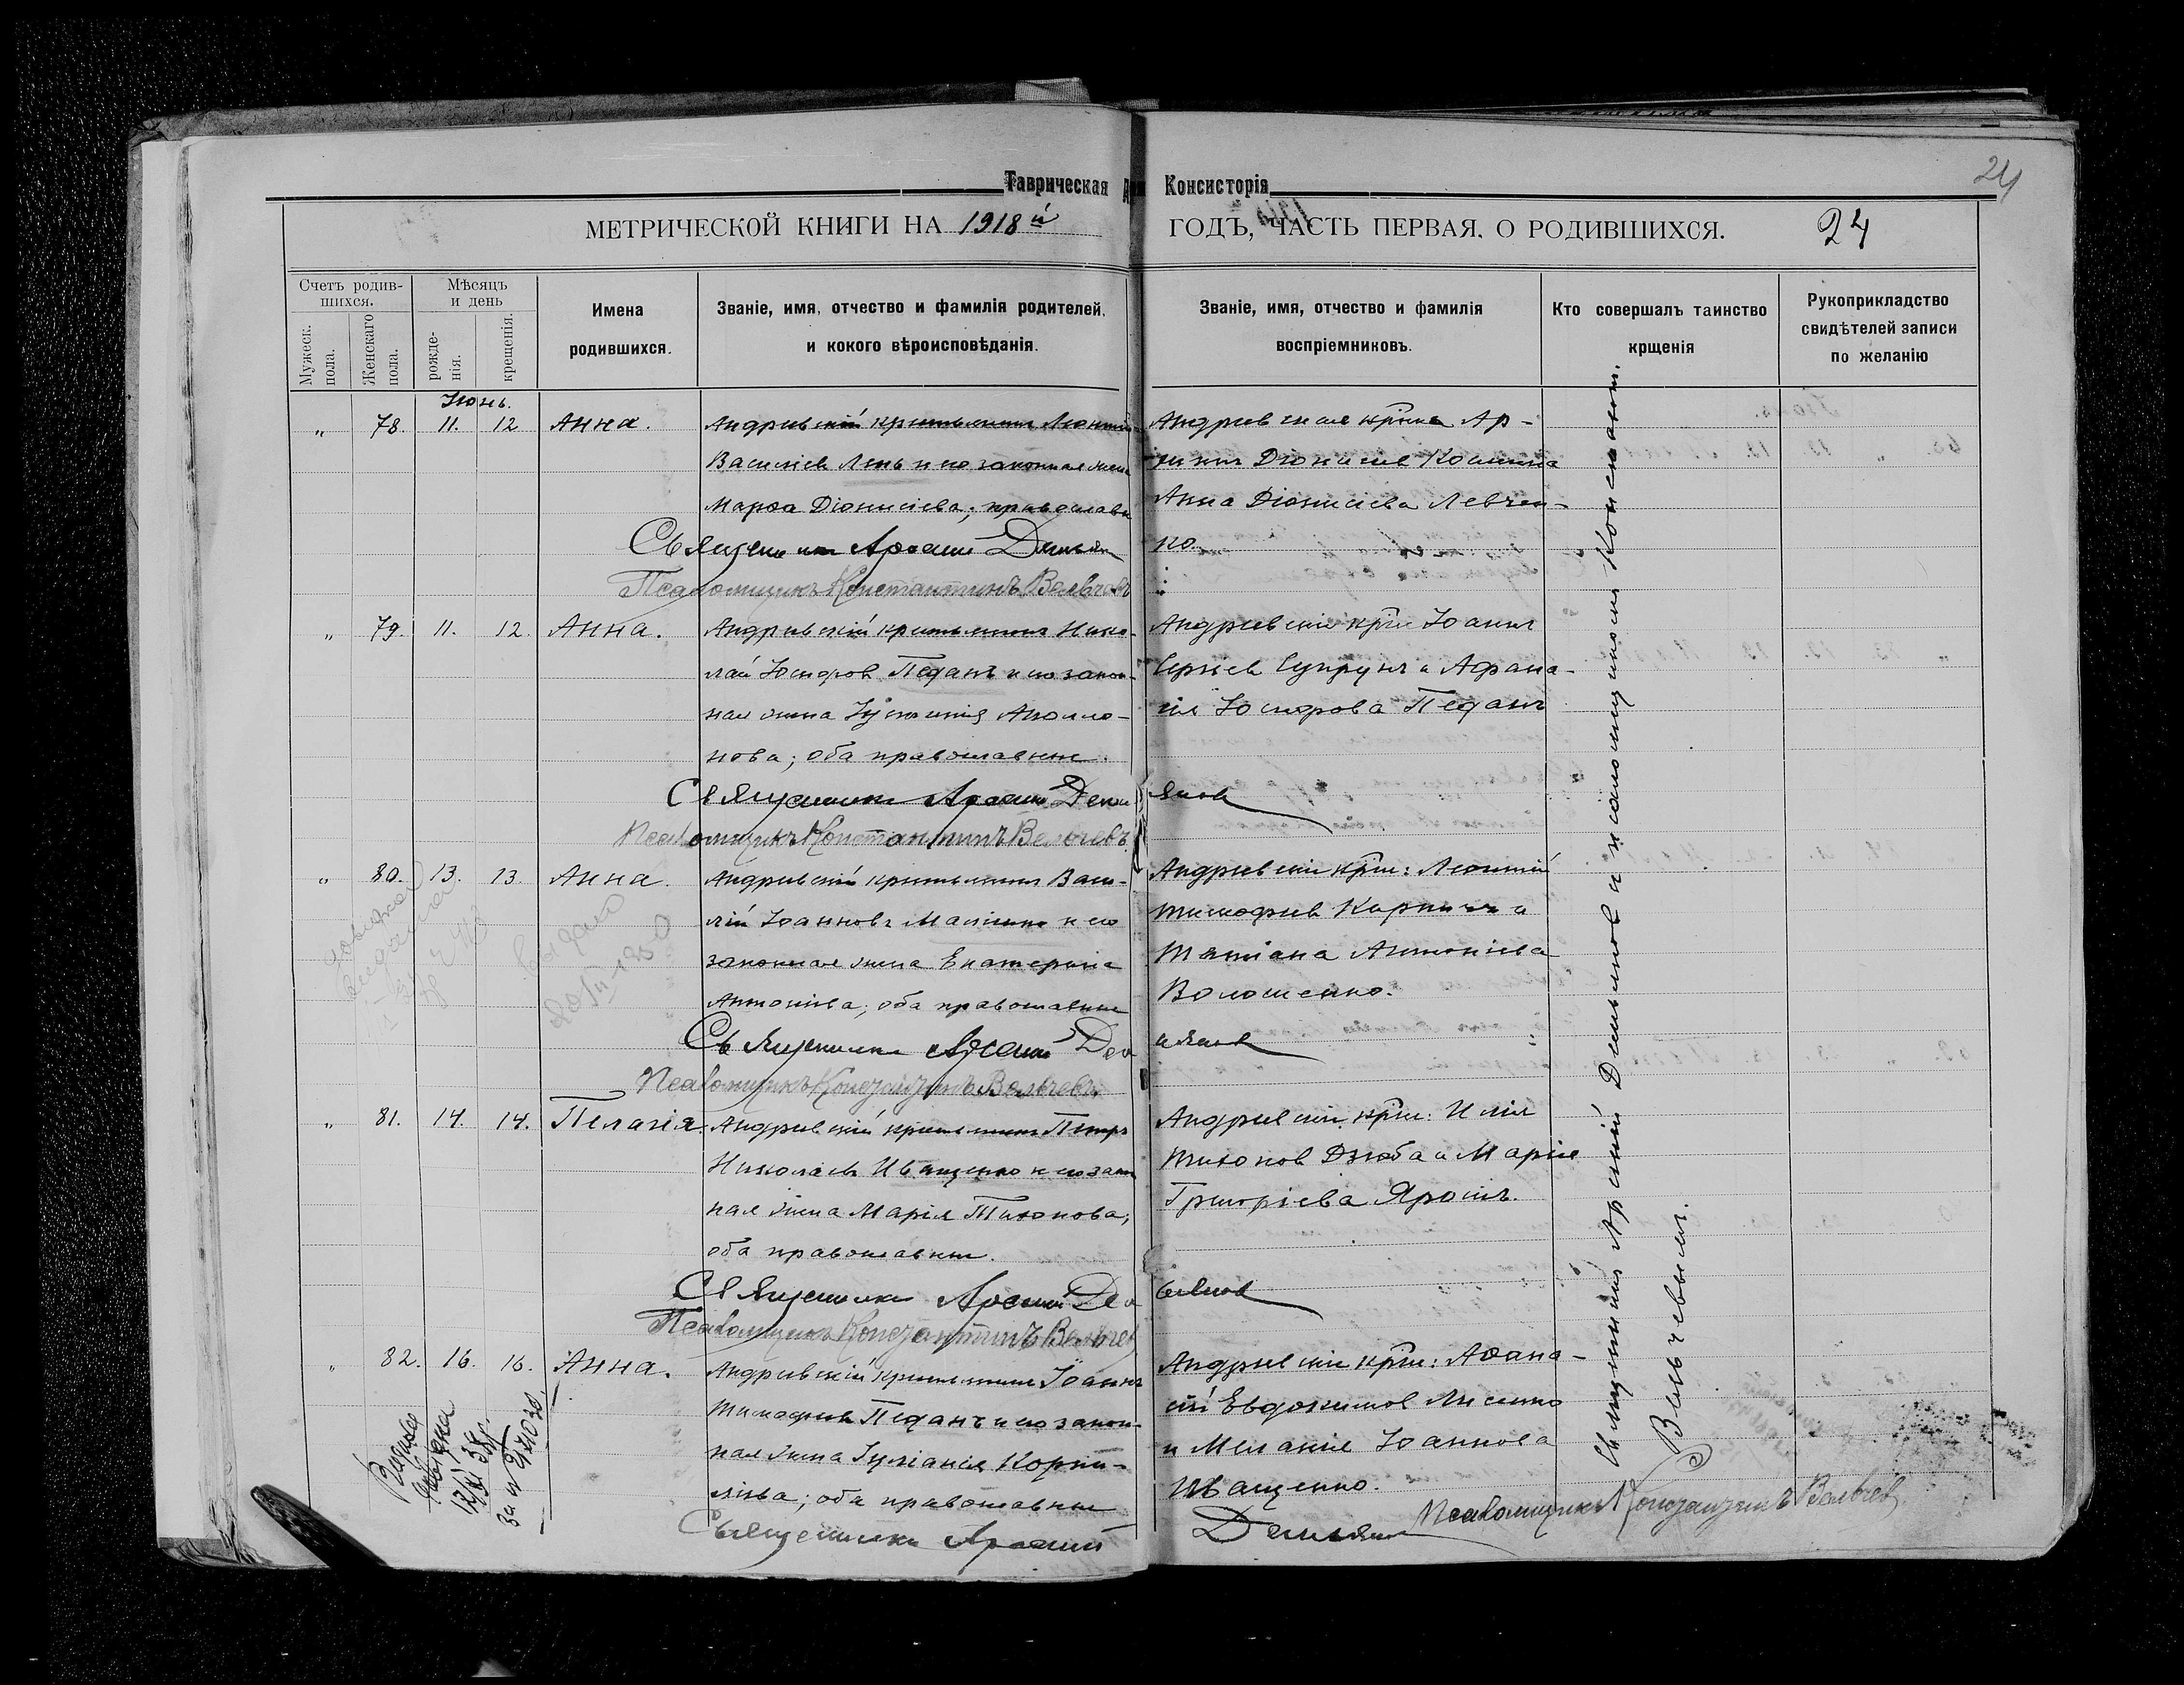 24
Таврическая Консисторія
МЕТРИЧЕСКОЙ КНИГИ НА 1918й ГОДЪ, ЧАСТЬ ПЕРВАЯ. О РОДИВШИХСЯ. 24
Счетъ родив-
шихся.
Мужеск.
пола.
Женскаго
пола.
Мѣсяцъ
и день
рожде-
нія.
крещенія.
Имена
родившихся.
Званіе, имя, отчество и фамилія родителей,
и кокого вѣроисповѣданія.
Званіе, имя, отчество и фамилія
воспріемниковъ.
Кто совершалъ таинство
крщенія
Рукоприкладство
свидѣтелей записи
по желанію
Іюнь.
" 78. 11. 12 Анна.
Андреевскій крестьянинъ Леонтій
Василіев Лень и его законная жена
Марѳа Діонисіева; православн
Священник Арсеній Демьян
Псаломщикъ Константинъ Вельчевъ
Андреевские
Анна Діонисіева Левчен-
ко.
" 79. 11. 12. Анна.
Андреевскій крестьянинъ Нико-
лай Іосифов Педанъ и его закон-
ная жена
нова; оба православные.
Священник Арсеній Демьянов
Псаломщикъ Константинъ Вельчевъ
Андреевскіе кр̃не Іоаннъ
Сергіев Супрунъ и Афана-
сія Іосифова Педанъ
" 80. 13. 13. Анна.
Андреевскій крестьянинъ Васи-
лій Іоанновъ и его
законная жена Екатерина
Антоніева; оба православные
Священник Арсеній Демьянов
Псаломщикъ Константинъ Вельчевъ
Андреевскіе кр̃не: Леонтій
Тимофеев и
Татіана Антоніева
Волошенко.
выдано
" 81. 14. 14. Пелагія.
Андреевскій крестьянинъ Петръ
Николаевъ Иващенко и его закон
ная жена Марія Тихонова;
оба православные.
Священник Арсеній Демьянов
Псаломщикъ Константинъ Вельчев
Андреевскіе кр̃не: Илія
Тихонов Дзюба и Марія
Григоріева Ярошъ.
" 82. 16. 16. Анна.
Андреевскій крестьянинъ Іоаннъ
Тимофеев Педанъ и его закон-
ная жена Іуліанія Корни-
ліева; оба православные
Священник Арсеній Демьян
Псаломщикъ Константинъ Вельчев
Андреевскіе кр̃не: Аѳана-
сій Евдокимов Лисенко
и Меланія Іоаннова
Иващенко.
за № 27030.
Священникъ Арсеній Демьянов и псаломщикомъ Константин.
Вельчевымъ.